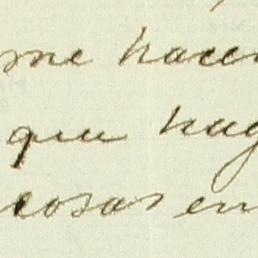 me hacen
que hag
cosas en